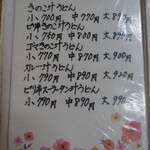 きのこ汁うどん
小700円 中770円 大8
ピリ辛きのこ汁うどん
小750円 中800円 大870円
ゴマきのこ汁うどん
小770円 中830円 大900円
カレー汁うどん
小790円 中890円 大920円
ピリ辛スーラータン汁うどん
小790円 中890円 大990円